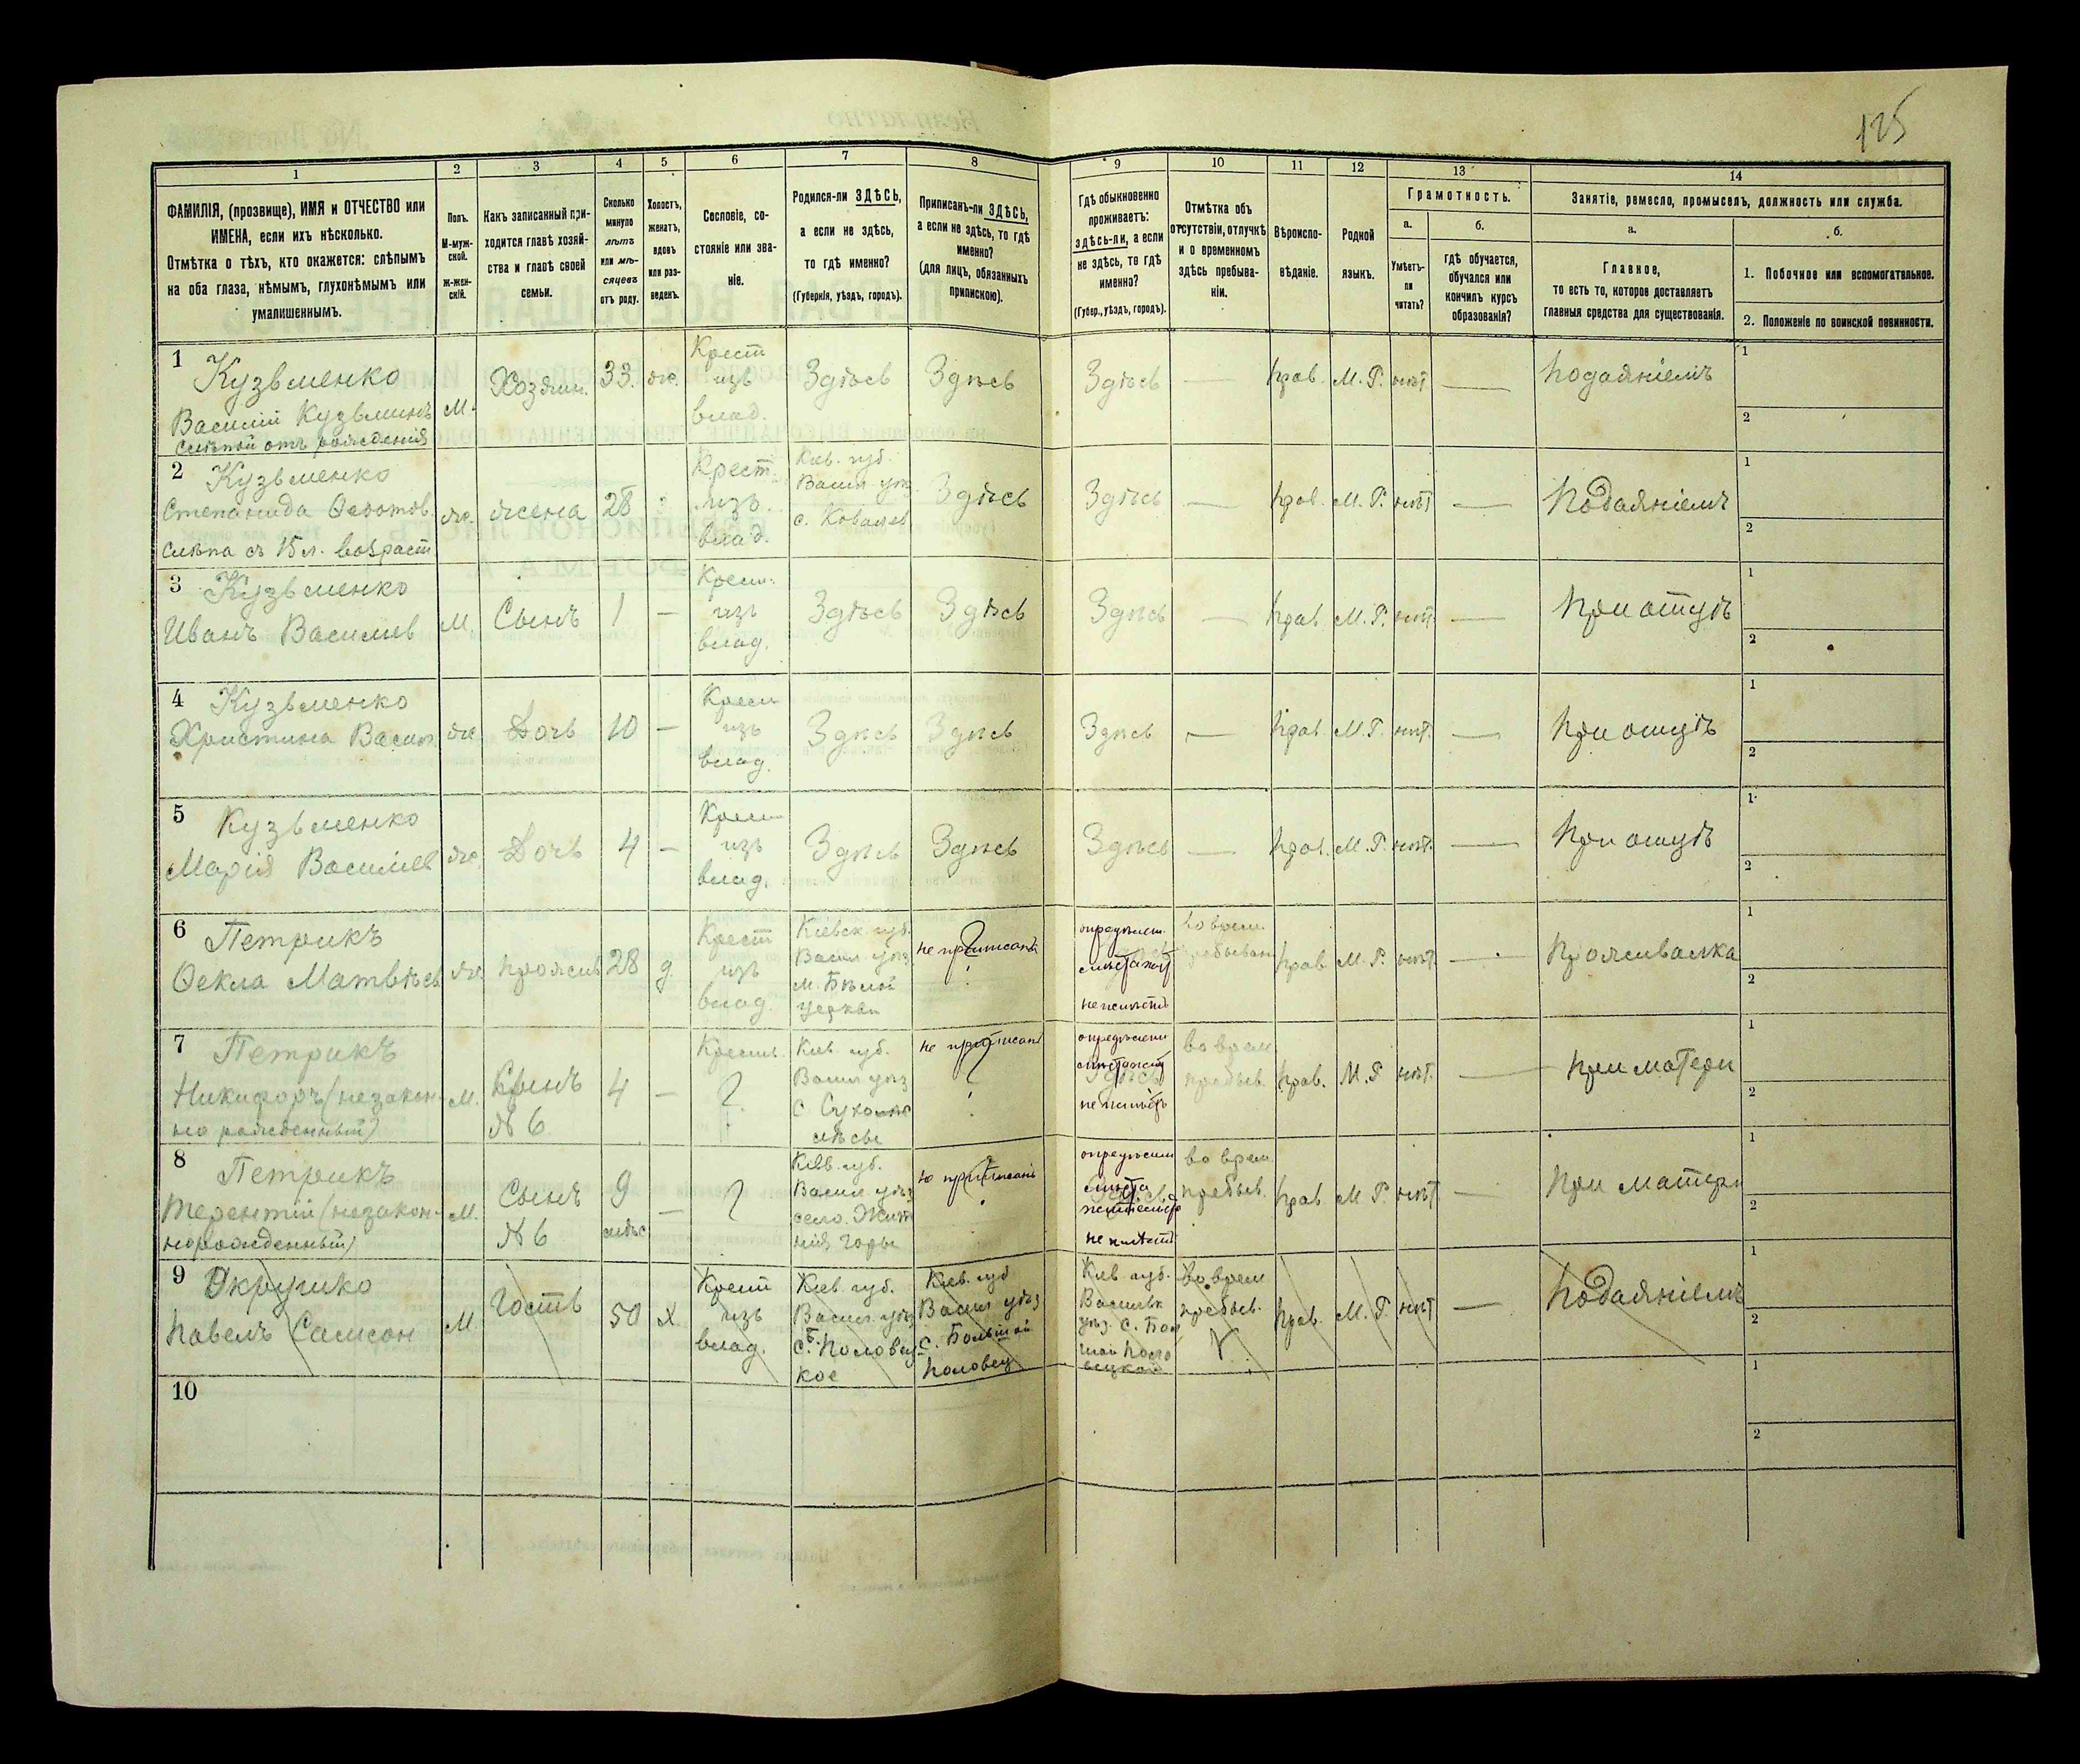 125
1
2
3
4
5
6
7
8
9
10
11
12
13
14
ФАМИЛІЯ, (прозвище), ИМЯ и ОТЧЕСТВО или
ИМЕНА, если ихъ нѣсколько.
Отмѣтка о тѣхъ, кто окажется: слѣпымъ
на оба глаза, нѣмымъ, глухонѣмымъ или
умалишеннымъ.
Полъ.
М-муж-
ской.
Ж-жен-
скій.
Какъ записанный при-
ходится главѣ хозяй-
ства и главѣ своей
семьи.
Сколько
минуло
лѣтъ
или мѣ-
сяцевъ
отъ роду.
Холостъ,
женатъ,
вдовъ
или раз-
веденъ.
Сословіе, со-
стояніе или зва-
ніе.
Родился-ли ЗДѢСЬ,
а если не здѣсь,
то гдѣ именно?
(Губернія, уѣздъ, городъ).
Приписанъ-ли ЗДѢСЬ,
а если не здѣсь, то гдѣ
именно?
(для лицъ, обязанныхъ
припискою).
Гдѣ обыкновенно
проживаетъ:
здѣсь-ли, а если
не здѣсь, то гдѣ
именно?
(Губер., уѣздъ, городъ).
Отмѣтка объ
отсутствіи, отлучкѣ
и о временномъ
здѣсь пребыва-
ніи.
Вѣроиспо-
вѣданіе.
Родной
языкъ.
Грамотность.
а.
Умѣетъ-
ли
читать?
б.
гдѣ обучается,
обучался или
кончилъ курсъ
образованія?
Занятіе, ремесло, промыселъ, должность или служба.
а.
Главное,
то есть то, которое доставляетъ
главныя средства для существованія.
б.
1. Побочное или вспомогательное.
2. Положеніе по воинской повинности.
1 Кузьменко
Василій Кузьминъ
слѣпой отъ рожденія
М.
Хозяин.
33.
же.
Крест
изъ
влад.
Здѣсь
Здѣсь
Здѣсь
—
прав.
М. Р.
нѣт
—
Подаяніемъ
1
2
2 Кузьменко
Степанида
слѣпа съ 15 л. возраст
же.
жена
28
Крест.
изъ
влад.
Кіев. губ.
Васил уѣз
с. Ковалев
Здѣсь
Здѣсь
—
прав.
М. Р.
нѣт
—
Подаяніемъ
1
2
3 Кузьменко
Иванъ Васильев
М.
Сынъ
1
—
Крест.
изъ
влад.
Здѣсь
Здѣсь
Здѣсь
—
прав.
М. Р.
нѣт.
—
При отцѣ
1
2
4 Кузьменко
Христина Васил
же
Дочь
10
—
Крест
изъ
влад.
Здѣсь
Здѣсь
Здѣсь
—
прав.
М. Р.
нѣт.
—
При отцѣ
1
2
5 Кузьменко
Марія Васильев
же.
Дочь
4
—
Крест
изъ
влад.
Здѣсь
Здѣсь
Здѣсь
—
прав.
М. Р.
нѣт.
—
При отцѣ
1
2
6 Петрикъ
Ѳекла Матвѣев
же
прожив
28
д
Крест
изъ
влад.
Кіевск губ.
Васил уѣз
м. Бѣлой
Церкви
не приписана
?
не имѣетъ
во врем.
пребыван
прав.
М. Р.
нѣт
—
Проживалка
1
2
7 Петрикъ
Никифоръ (незакон-
но рожденный)
М.
Сынъ
№ 6
4
—
Крест.
?
Кіев. губ.
Васил уѣз
с
лѣсы
не приписан
?
во врем
пребыв.
прав.
М. Р
нѣт.
—
При матери
1
2
8 Петрикъ
Терентій (незакон-
норожденный)
М.
Сынъ
№ 6
9
мѣс
—
?
Кіев. губ.
Васил уѣз
село. Жит
нія Горы
не приписанъ
?
мѣста
не имѣетъ
во врем.
пребыв.
прав
М. Р.
нѣт
—
При матери
1
2
9
Павелъ Самсон
М
Гость
50
х
Крест
изъ
влад.
Кіев губ.
Васил. уѣз
с. Б. Половец-
кое
Кіев. губ
Васил уѣз
с. Большой
Половец
Кіев губ.
Васильк
уѣз. с. Бол
шой Поло
вецкой
во врем
пребыв.
прав.
М. Р.
нѣт
—
Подаяніемъ
1
2
10
1
2